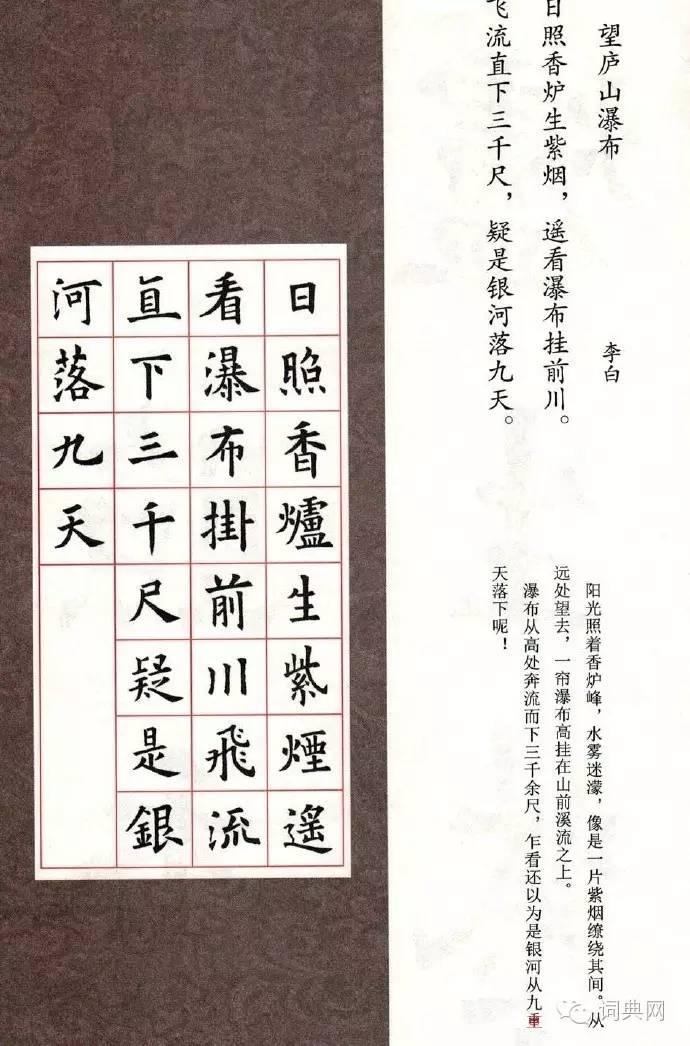 望庐山瀑布
李白
日照香炉生紫烟，遥看瀑布挂前川。
飞流直下三千尺，疑是银河落九天。
阳光照着香炉峰，水雾迷濛，像是一片紫烟缭绕其间。从
远处望去，一帘瀑布高挂在山前溪流之上。
瀑布从高处奔流而下三千余尺，乍看还以为是银河从九重
天落下呢！
日照香爐生紫煙遙
看瀑布掛前川飛流
直下三千尺疑是銀
河落九天
词典网